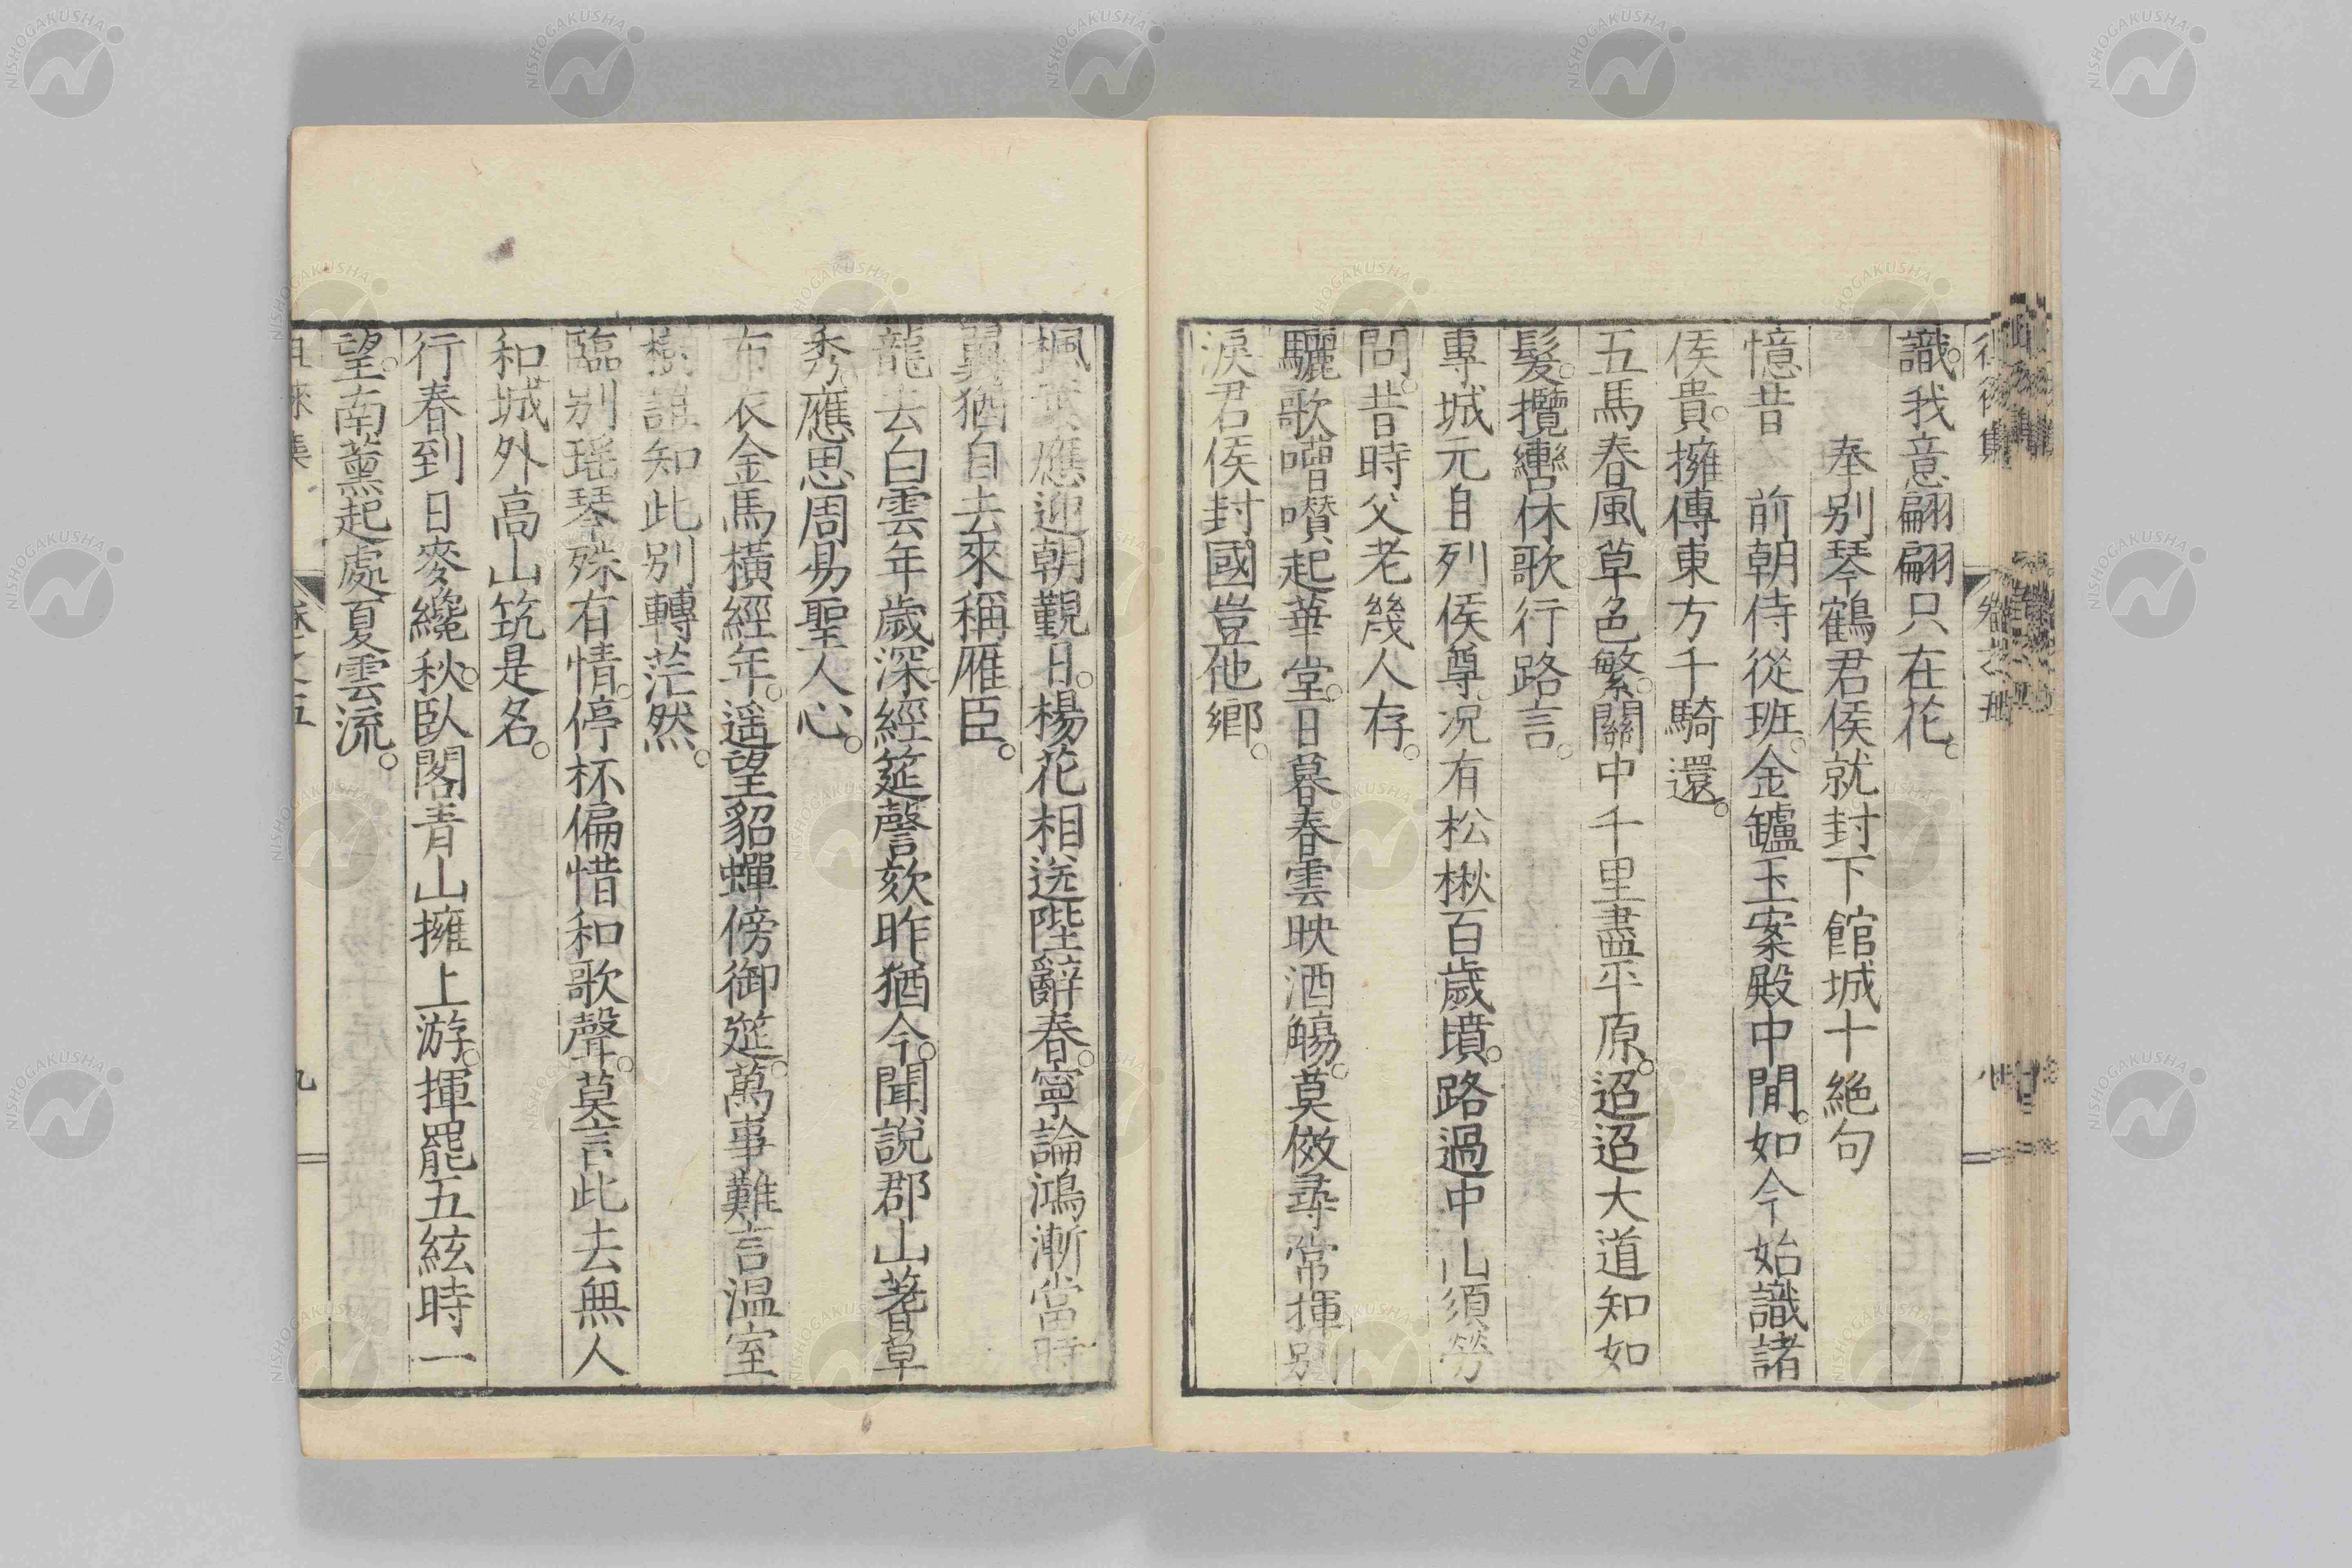 識。我意翩翩只在花。
奉別琴鶴君侯就封下館城十絕句
憶昔前朝侍從班。金鑪玉案殿中間。如今始識諸
侯貴。擁傳東方千騎還。
五馬春風草色繁。關中千里盡平原。迢迢大道知如
髮。攬轡休歌行路言。
專城元自列侯尊。況有松楸百歲墳。路過中山須勞
問。昔時父老幾人存。
驪歌囋囋起華堂。日暮春雲映酒觴。莫傚尋常揮別
淚。君侯封國豈他鄉。
楓葉應迎朝覲日。楊花相送陛辭春。寧論鴻漸當時
翼。猶自去來稱雁臣。
龍去白雲年歲深。經筵謦欬昨猶今。聞說郡山蓍草
秀。應思周易聖人心。
布衣金馬橫經年。遥望貂蟬傍御筵。萬事難言温室
樹。誰知此別轉茫然。
臨別瑶琴殊有情。停杯偏惜和歌聲。莫言此去無人
和。城外高山筑是名。
行春到日麥纔秋。臥閣青山擁上游。揮罷五絃時一
望。南薰起處夏雲流。
徂徠集 卷之五 九